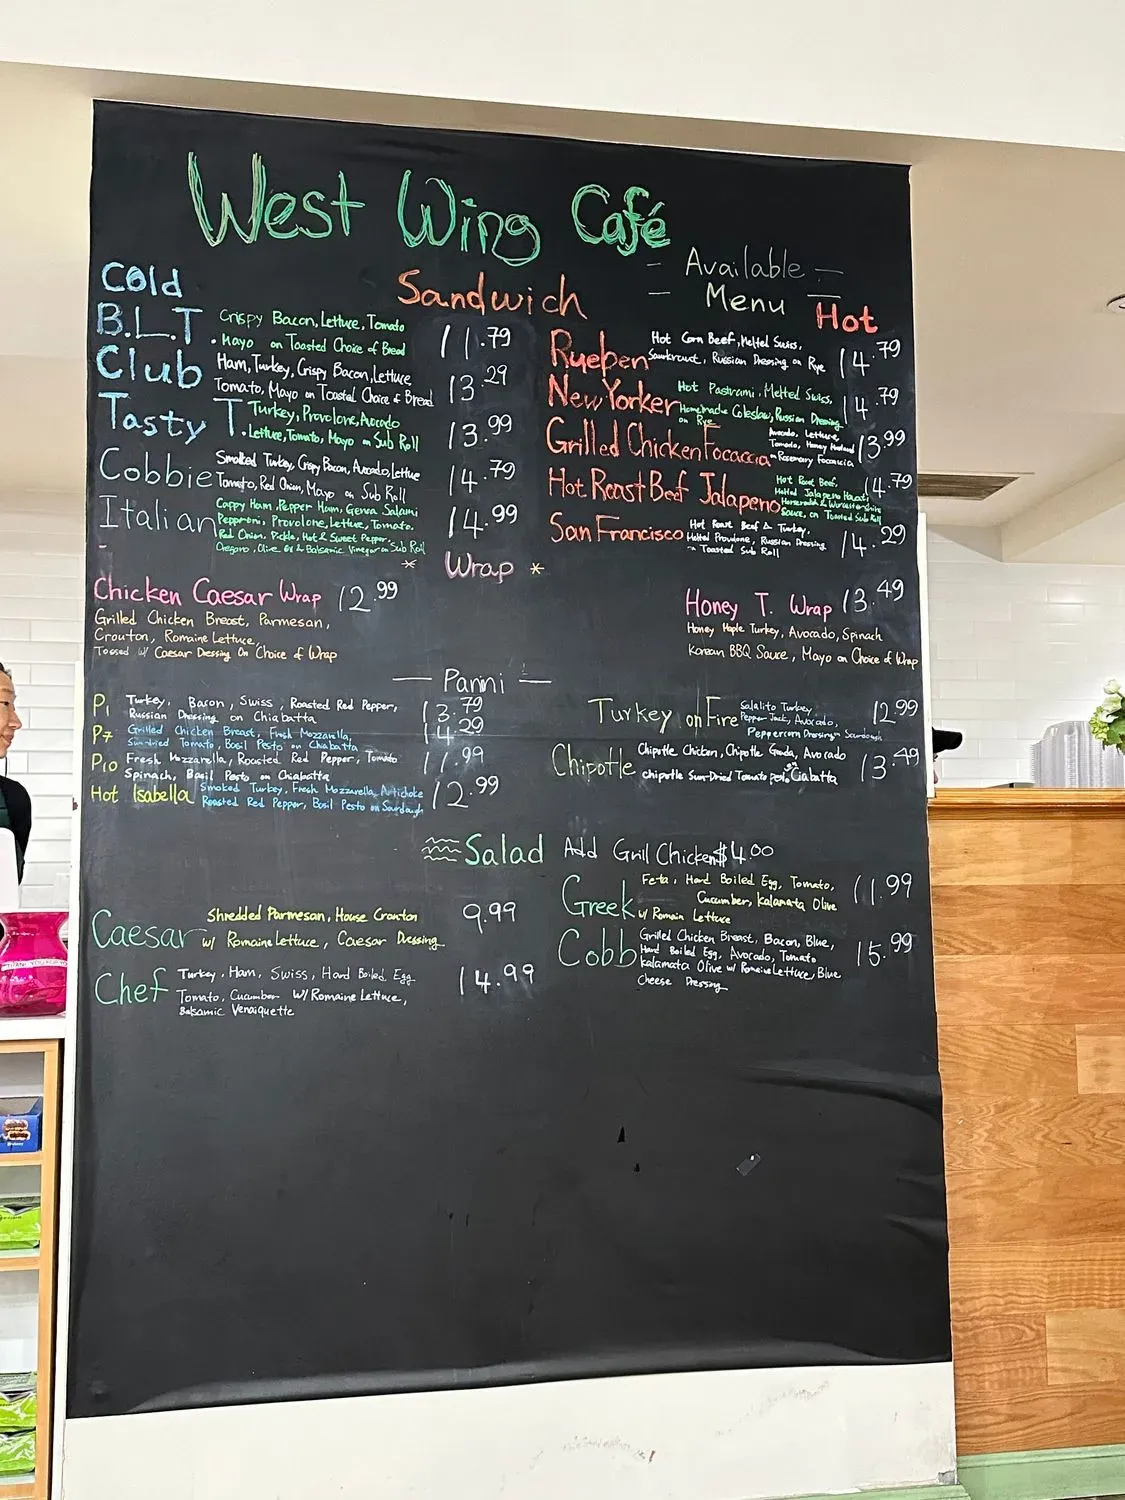 West Wing Café
— Available —
— Menu —
Cold
Sandwich
Hot
B.L.T. Crispy Bacon, Lettuce, Tomato 11.79
. Mayo on Toasted Choice of Bread
Club Ham, Turkey, Crispy Bacon, Lettuce 13.29
Tomato, Mayo on Toasted Choice of Bread
Tasty T. Turkey, Provolone, Avocado 13.99
Lettuce, Tomato, Mayo on Sub Roll
Cobbie Smoked Turkey, Crispy Bacon, Avocado, Lettuce 14.79
Tomato, Red Onion, Mayo on Sub Roll
Italian Cappy Ham, Pepper Ham, Genoa Salami 14.99
Pepperoni, Provolone, Lettuce, Tomato.
Red Onion, Pickle, Hot & Sweet Pepper,
Oregano, Olive Oil & Balsamic Vinegar on Sub Roll
Rueben Hot Corn Beef, Melted Swiss, 14.79
Sauerkraut, Russian Dressing on Rye
New Yorker Hot Pastrami, Melted Swiss, 14.79
Homemade Coleslaw, Russian Dressing
on Rye
Grilled Chicken Focaccia Avocado, Lettuce 13.99
Tomato, Honey Mustard
on Rosemary Focaccia
Hot Roast Beef Jalapeno Hot Roast Beef, 14.79
Melted Jalapeno Havarti
Horseradish & Worcestershire
Sauce, on Toasted Sub Roll
San Francisco Hot Roast Beef & Turkey, 14.29
Melted Provolone, Russian Dressing
on Toasted Sub Roll
* Wrap *
Chicken Caesar Wrap 12.99
Grilled Chicken Breast, Parmesan,
Crouton, Romaine Lettuce,
Tossed w/ Caesar Dressing On Choice of Wrap
Honey T. Wrap 13.49
Honey Maple Turkey, Avocado, Spinach
Korean BBQ Sauce, Mayo on Choice of Wrap
— Panini —
P1 Turkey, Bacon, Swiss, Roasted Red Pepper, 13.79
Russian Dressing on Chiabatta
P7 Grilled Chicken Breast, Fresh Mozzarella, 14.29
Sun-dried Tomato, Basil Pesto on Chiabatta
P10 Fresh Mozzarella, Roasted Red Pepper, Tomato 11.99
Spinach, Basil Pesto on Chiabatta
Hot Isabella Smoked Turkey, Fresh Mozzarella, Artichoke 12.99
Roasted Red Pepper, Basil Pesto on Sourdough
Turkey on Fire Salalito Turkey, 12.99
Pepper Jack, Avocado,
Peppercorn Dressing Sourdough
Chipotle Chipotle Chicken, Chipotle Gouda, Avocado 13.49
chipotle Sun-Dried Tomato pesto on Ciabatta
Salad Add Grill Chicken $4.00
Caesar Shredded Parmesan, House Crouton 9.99
w/ Romaine Lettuce, Caesar Dressing
Chef Turkey, Ham, Swiss, Hard Boiled Egg 14.99
Tomato, Cucumber w/ Romaine Lettuce,
Balsamic Venaiquette
Greek Feta, Hard Boiled Egg, Tomato, 11.99
Cucumber, Kalamata Olive
w/ Romain Lettuce
Cobb Grilled Chicken Breast, Bacon, Blue, 15.99
Hard Boiled Egg, Avocado, Tomato
Kalamata Olive w/ Romaine Lettuce, Blue
Cheese Dressing